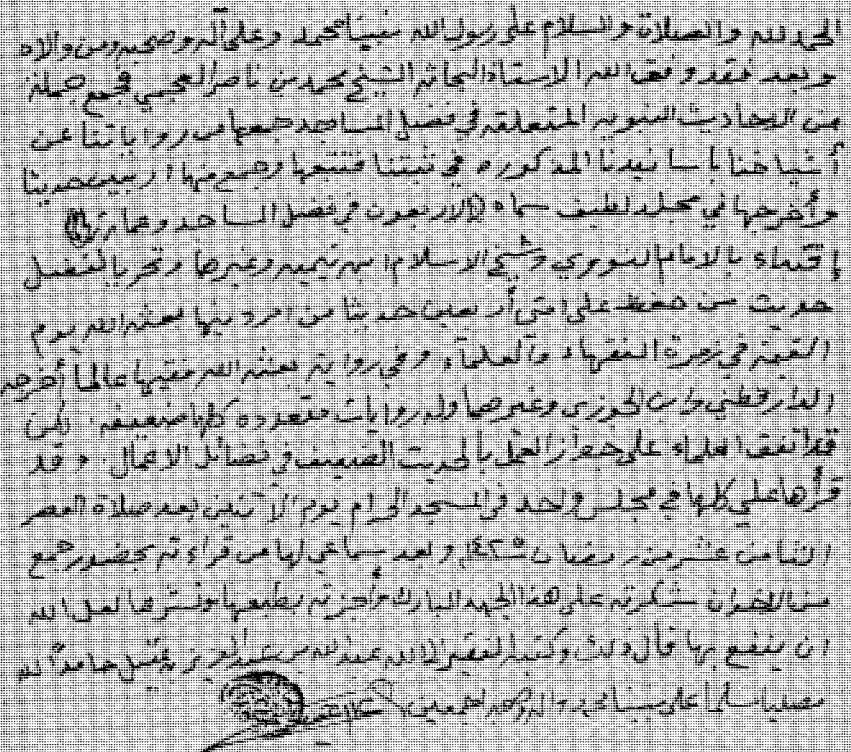 الحمد لله والصلاة والسلام على رسول الله نبينا محمد وعلى آله وصحبه ومن والاه
وبعد فقد وفق الله الاستاذ البحاثه الشيخ محمد بن ناصر العجمي فجمع جملة
من الاحاديث النبويه المتعلقه في فضل المساجد جمعها من رواياتنا عن
أشياخنا بأسانيدنا المذكوره في ثبتنا فتتبعها وجمع منها اربعين حديثا
وأخرجها في مجلد لطيف سماه (الاربعون في فضل المساجد وعمارتها)
إقتداء بالامام النووي وشيخ الاسلام ابن تيميه وغيرها وتحريا لفضل
حديث من حفظ على امتي أربعين حديثا من امر دينها بعثه الله يوم
القيمة في زمرة الفقهاء والعلماء وفي رواية بعثه الله فقيها عالما أخرجه
الدارقطني وابن الجوزي وغيرهما وله روايات متعدده كلها ضعيفه. لكن
قد اتفق العلماء على جواز العمل بالحديث الضعيف في فضائل الاعمال. وقد
قرأها علي كلها في مجلس واحد في المسجد الحرام يوم الاثنين بعد صلاة العصر
الثامن عشر من رمضان وبعد سماعي لها من قراءته بحضور جمع
من الاخوان شكرته على هذا الجهد المبارك وأجزته بطبعها ونشرها لعل الله
ان ينفع بها قال ذلك وكتبه الفقير الى الله عبد الله بن عبد العزيز بن عقيل حامدا لله
مصليا مسلما على نبينا محمد وآله وصحبه اجمعين